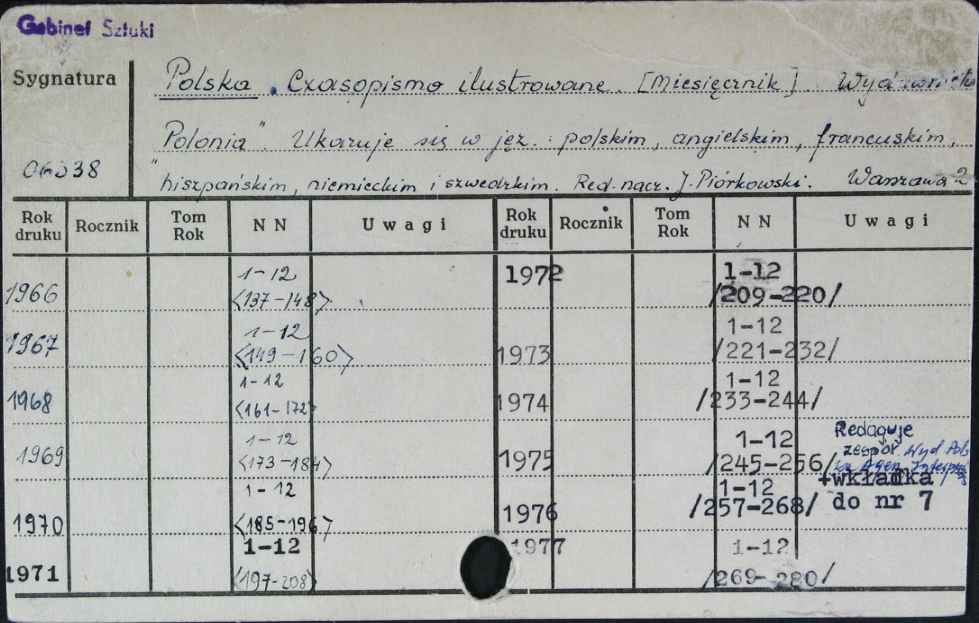 Gabinet Sztuki
Sygnatura
Polska. Czasopismo ilustrowane. [Miesięcznik]. Wydawnictwo
Polonia". Ukazuje się w jęz.: polskim, angielskim, francuskim,
"hiszpańskim, niemieckim i szwedzkim. Red. nacz. J. Piórkowski. Warszawa 2
Rok druku Rocznik Tom Rok NN Uwagi Rok druku Rocznik Tom Rok NN Uwagi
1966 1-12 <137-148> 1972 1-12 /209-220/
1967 1-12 <149-160> 1973 1-12 /221-232/
1968 1-12 <161-172> 1974 1-12 /233-244/
1969 1-12 <173-184> 1975 1-12 /245-256/ Redaguje zespół
1970 1-12 <185-196> 1976 1-12 /257-268/ +wkładka do nr 7
1971 1-12 <197-208> 1977 1-12 /269-280/